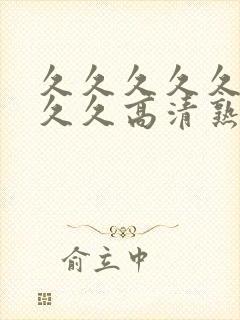 久久久久久
久久高清熟
俞立中